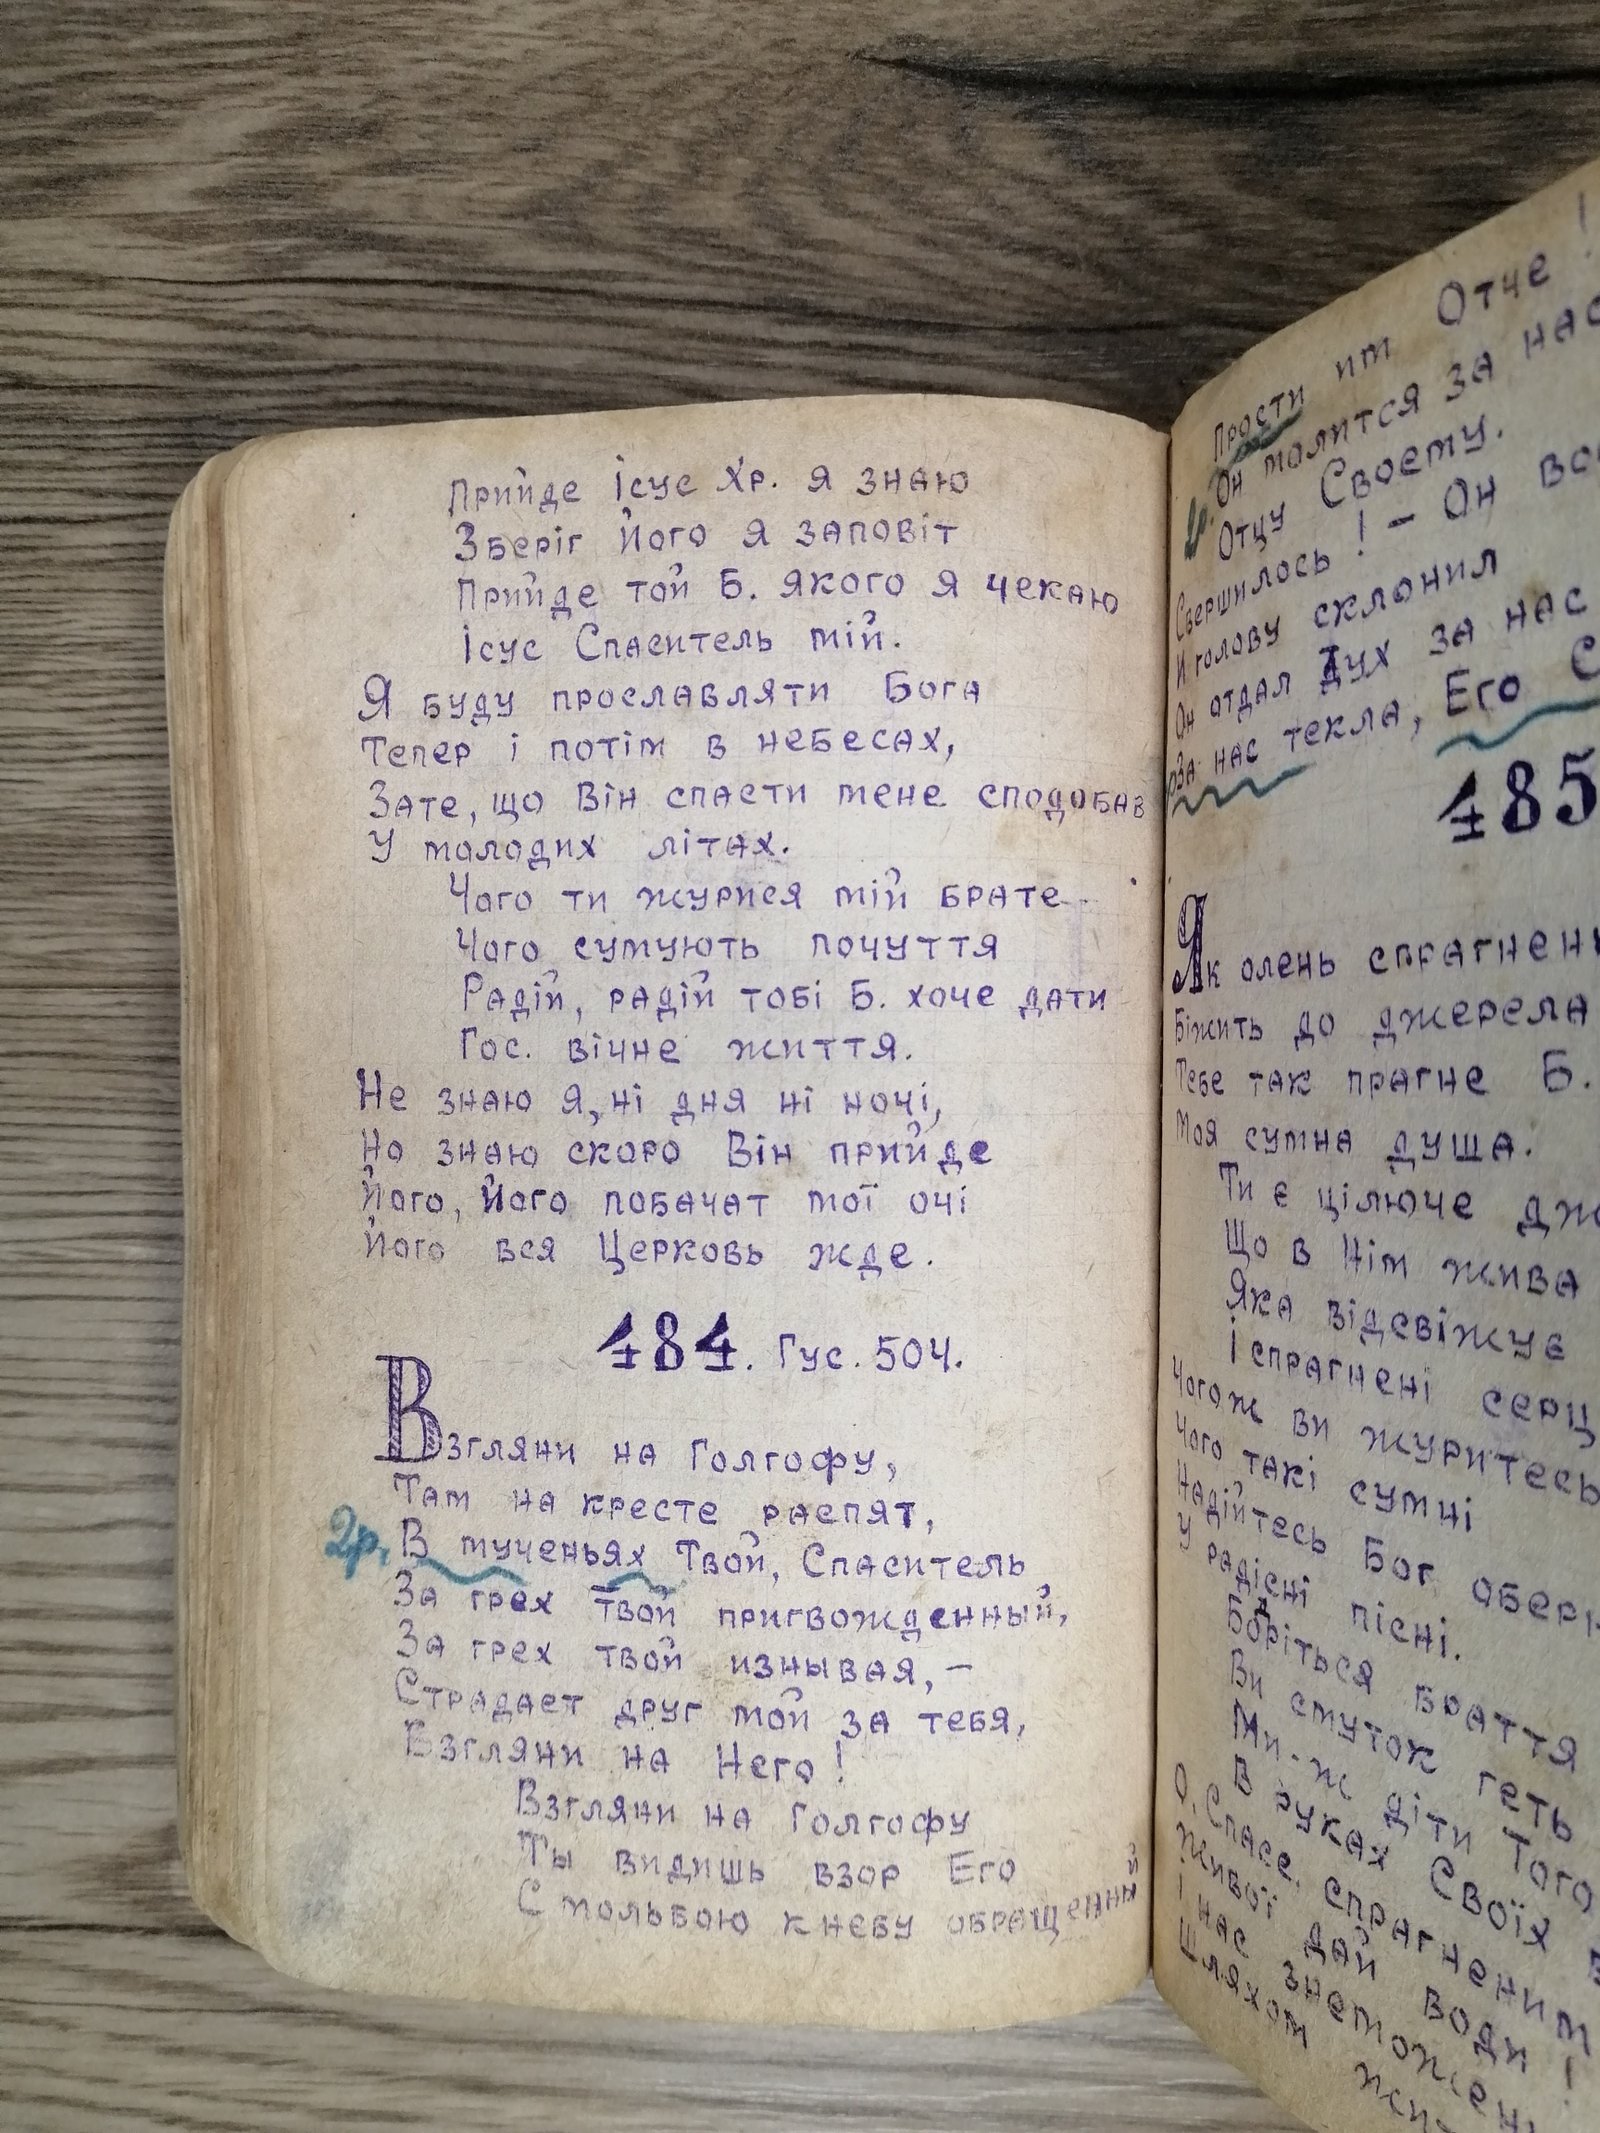 Прийде Ісус Хр. я знаю
Зберіг Його я заповіт
Прийде той Б. якого я чекаю
Ісус Спаситель мій.
Я буду прославляти Бога
Тепер і потім в небесах,
Зате, що Він спасти мене сподобав
У молодих літах.
Чого ти журися мій брате
Чого сумують почуття
Радій, радій тобі Б. хоче дати
Гос. вічне життя.
Не знаю я, ні дня ні ночі,
Но знаю скоро Він прийде
Його, Його побачат мої очі
Його вся Церковь жде.
484. Гус. 504.
Взгляни на Голгофу,
Там на кресте распят,
2р. В мученьях Твой, Спаситель
За грех твой пригвожденный,
За грех твой изнывая, –
Страдает друг мой за тебя,
Взгляни на Него!
Взгляни на Голгофу
Ты видишь взор Его
С мольбою к небу обращенный
Прости им Отче!
Он молится за нас
Отцу Своему.
Свершилось! – Он
И голову склонил
Он отдал Дух за нас
За нас текла, Его
485
Як олень спрагнени
Біжить до джерела
Тебе так прагне Б.
Моя сумна душа.
Ти є цілюче дж
Що в Нім жива
Яка відсвіжує
І спрагнені серц
Чого ж ви журитесь
Чого такі сумні
Надійтесь Бог оберн
У радісні пісні.
Боріться браття
Ви смуток геть
Ми-ж діти Того
В руках Своїх
О, Спасе, спрагненим
Живої дай води!
І нас знеможен
Шляхом жи